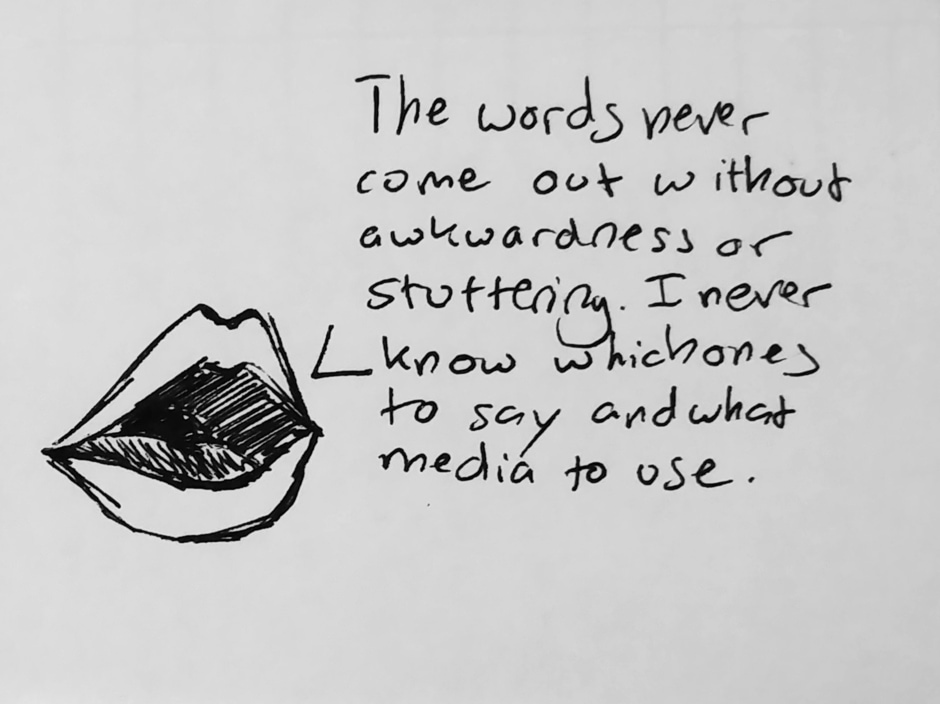 The words never
come out without
awkwardness or
stuttering. I never
know which ones
to say and what
media to use.